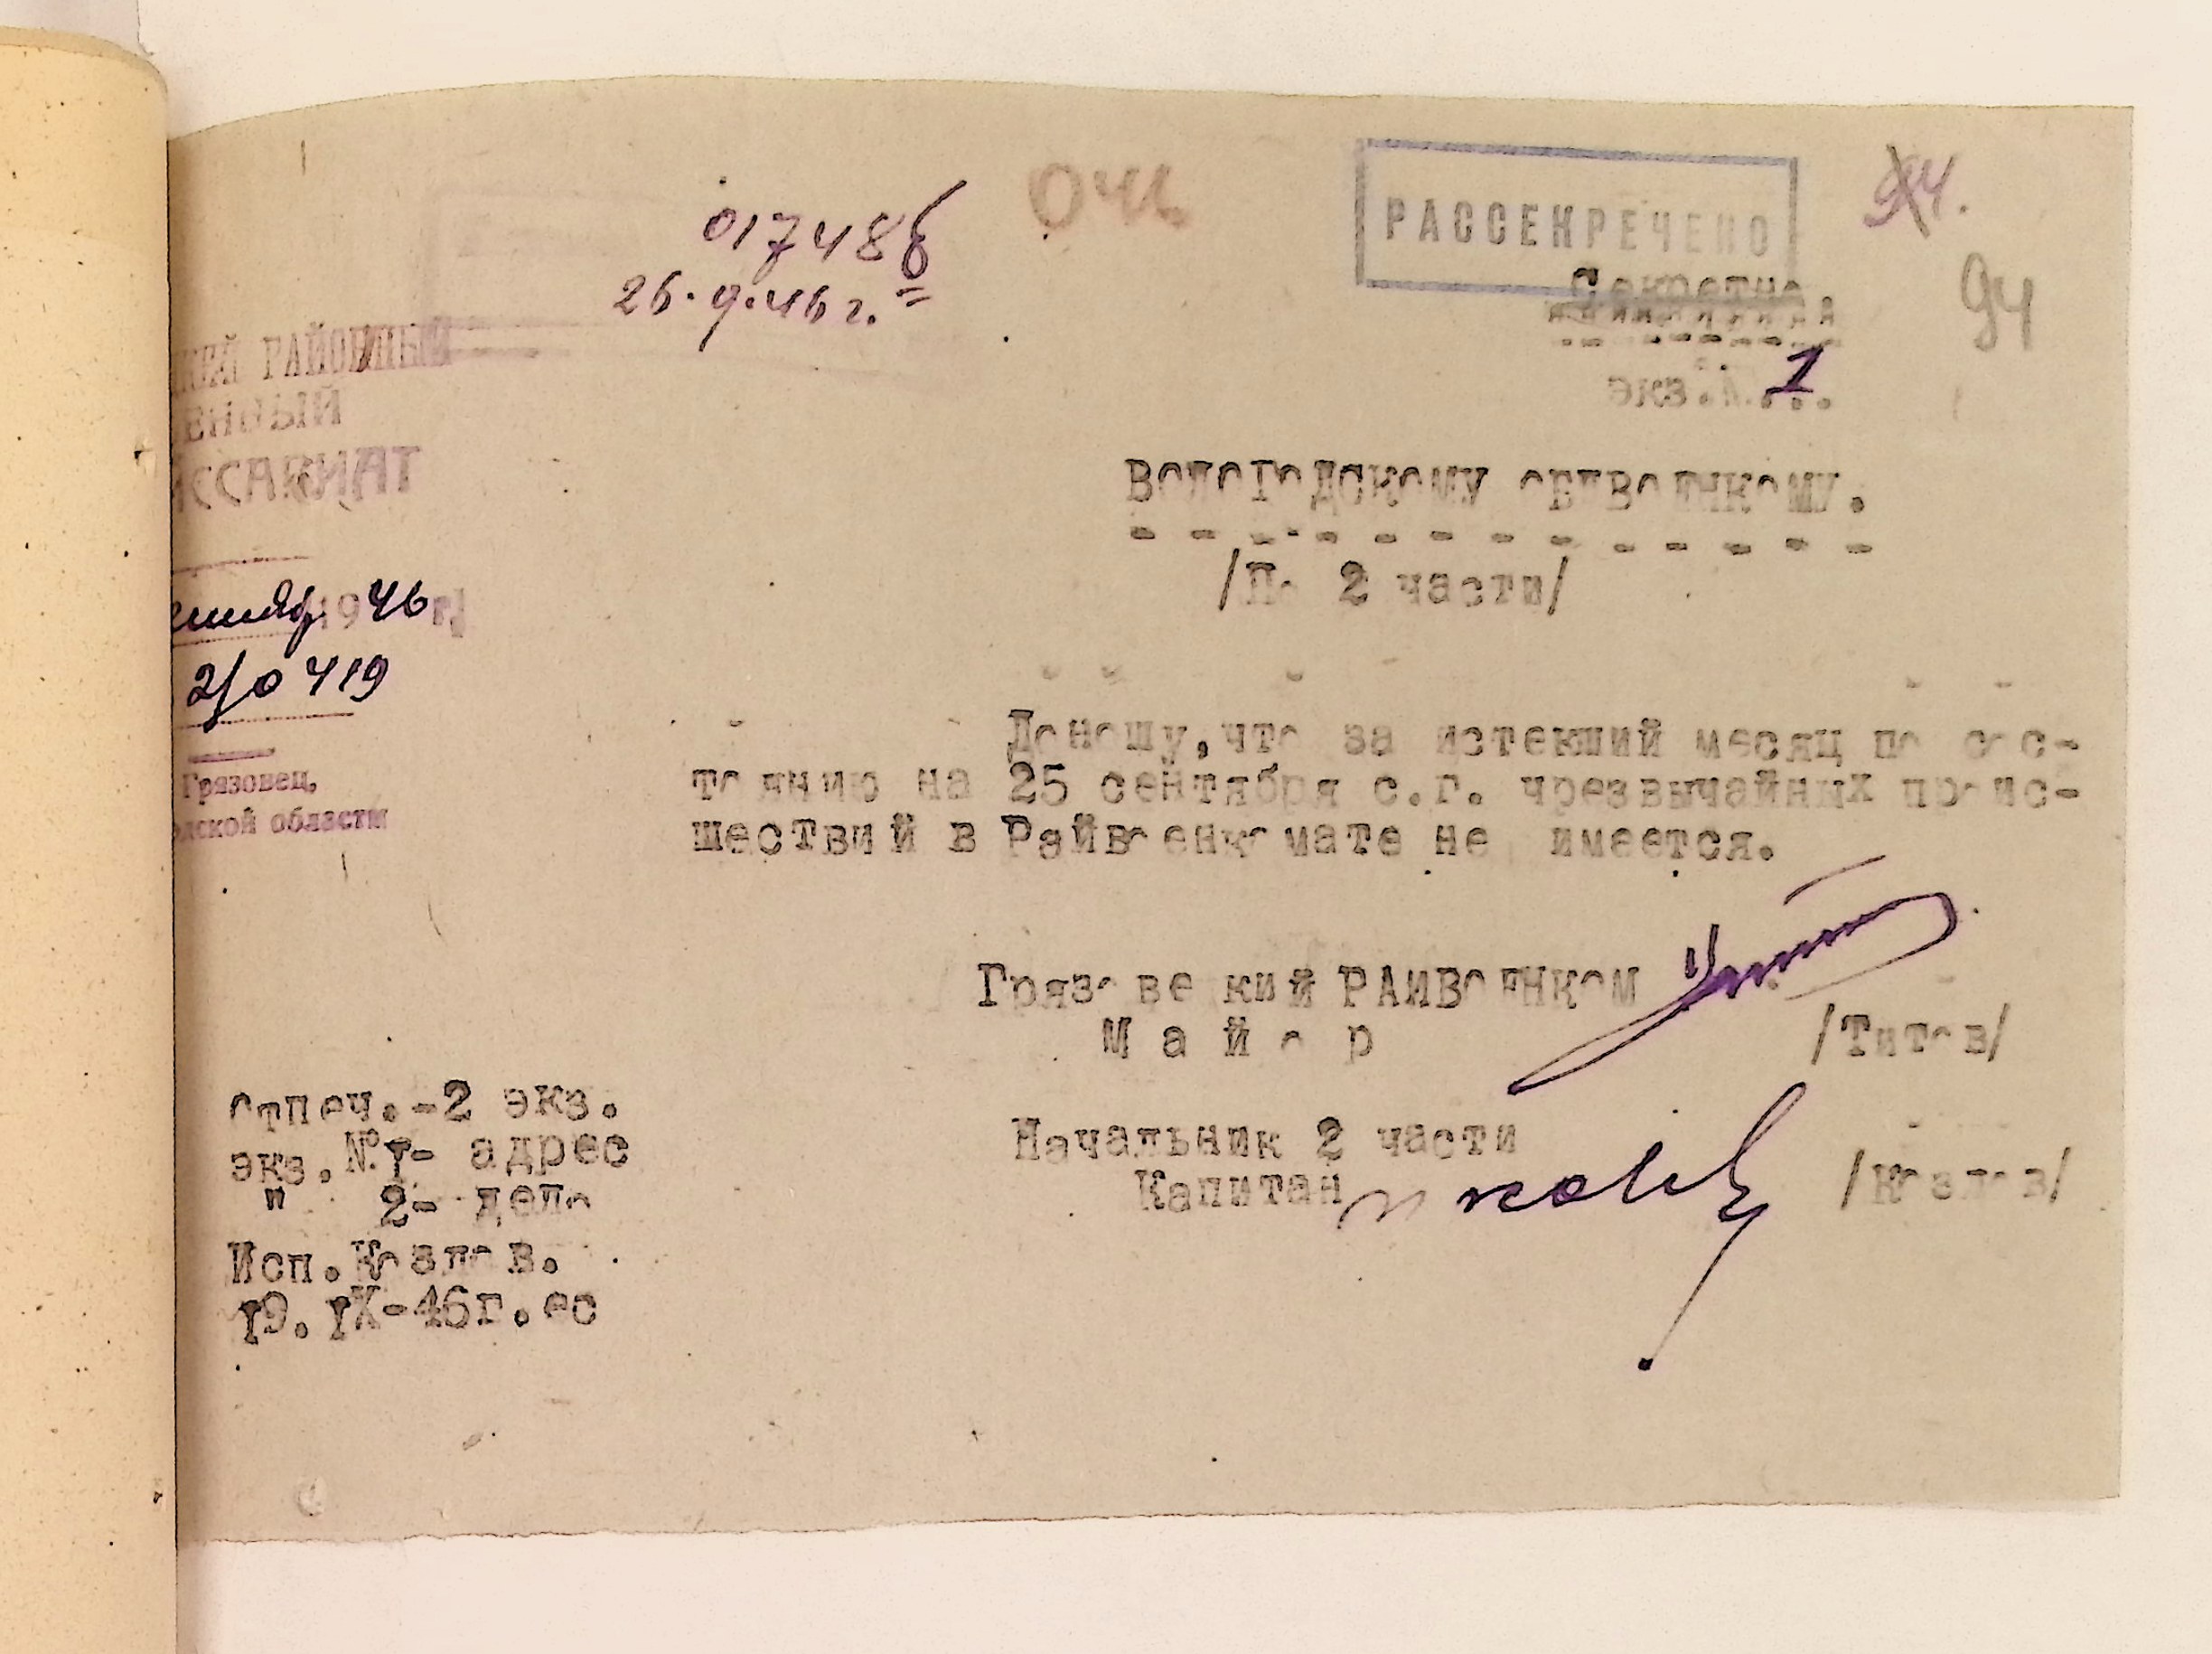 01748б
26.9.46 г.
РАССЕКРЕЧЕНО
94.
94
Секретно.
экз.№ 1
РАЙОННЫЙ
ЕННЫЙ
ССАРИАТ
1946 г.
2/0419
Грязовец,
ской области
Вологодскому облвоенкому.
/По 2 части/
Доношу,что за истекший месяц по сос-
тоянию на 25 сентября с.г. чрезвычайных проис-
шествий в Райвоенкомате не имеется.
Грязове кий РАЙВОЕНКОМ
М а й о р
/Титов/
Начальник 2 части
Капитан
/Козлов/
Отпеч.-2 экз.
экз.№I- адрес
" 2- дело
Исп.Козлов.
I9.IX-46г.ес